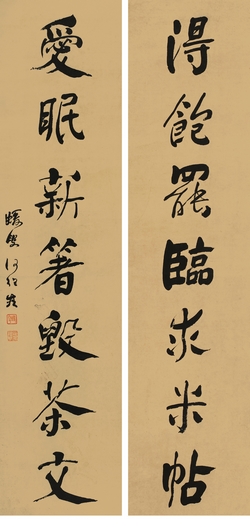 得飽罷臨求米帖
愛眠新著毀茶文
蝯叟何紹基